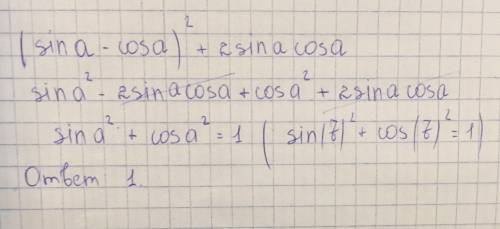 (sin a - cos a)² + 2 sin a cos a
sin a² - 2 sin a cos a + cos a² + 2 sin a cos a
sin a² + cos a² = 1 ( sin(t)² + cos(t)² = 1)
Ответ 1.